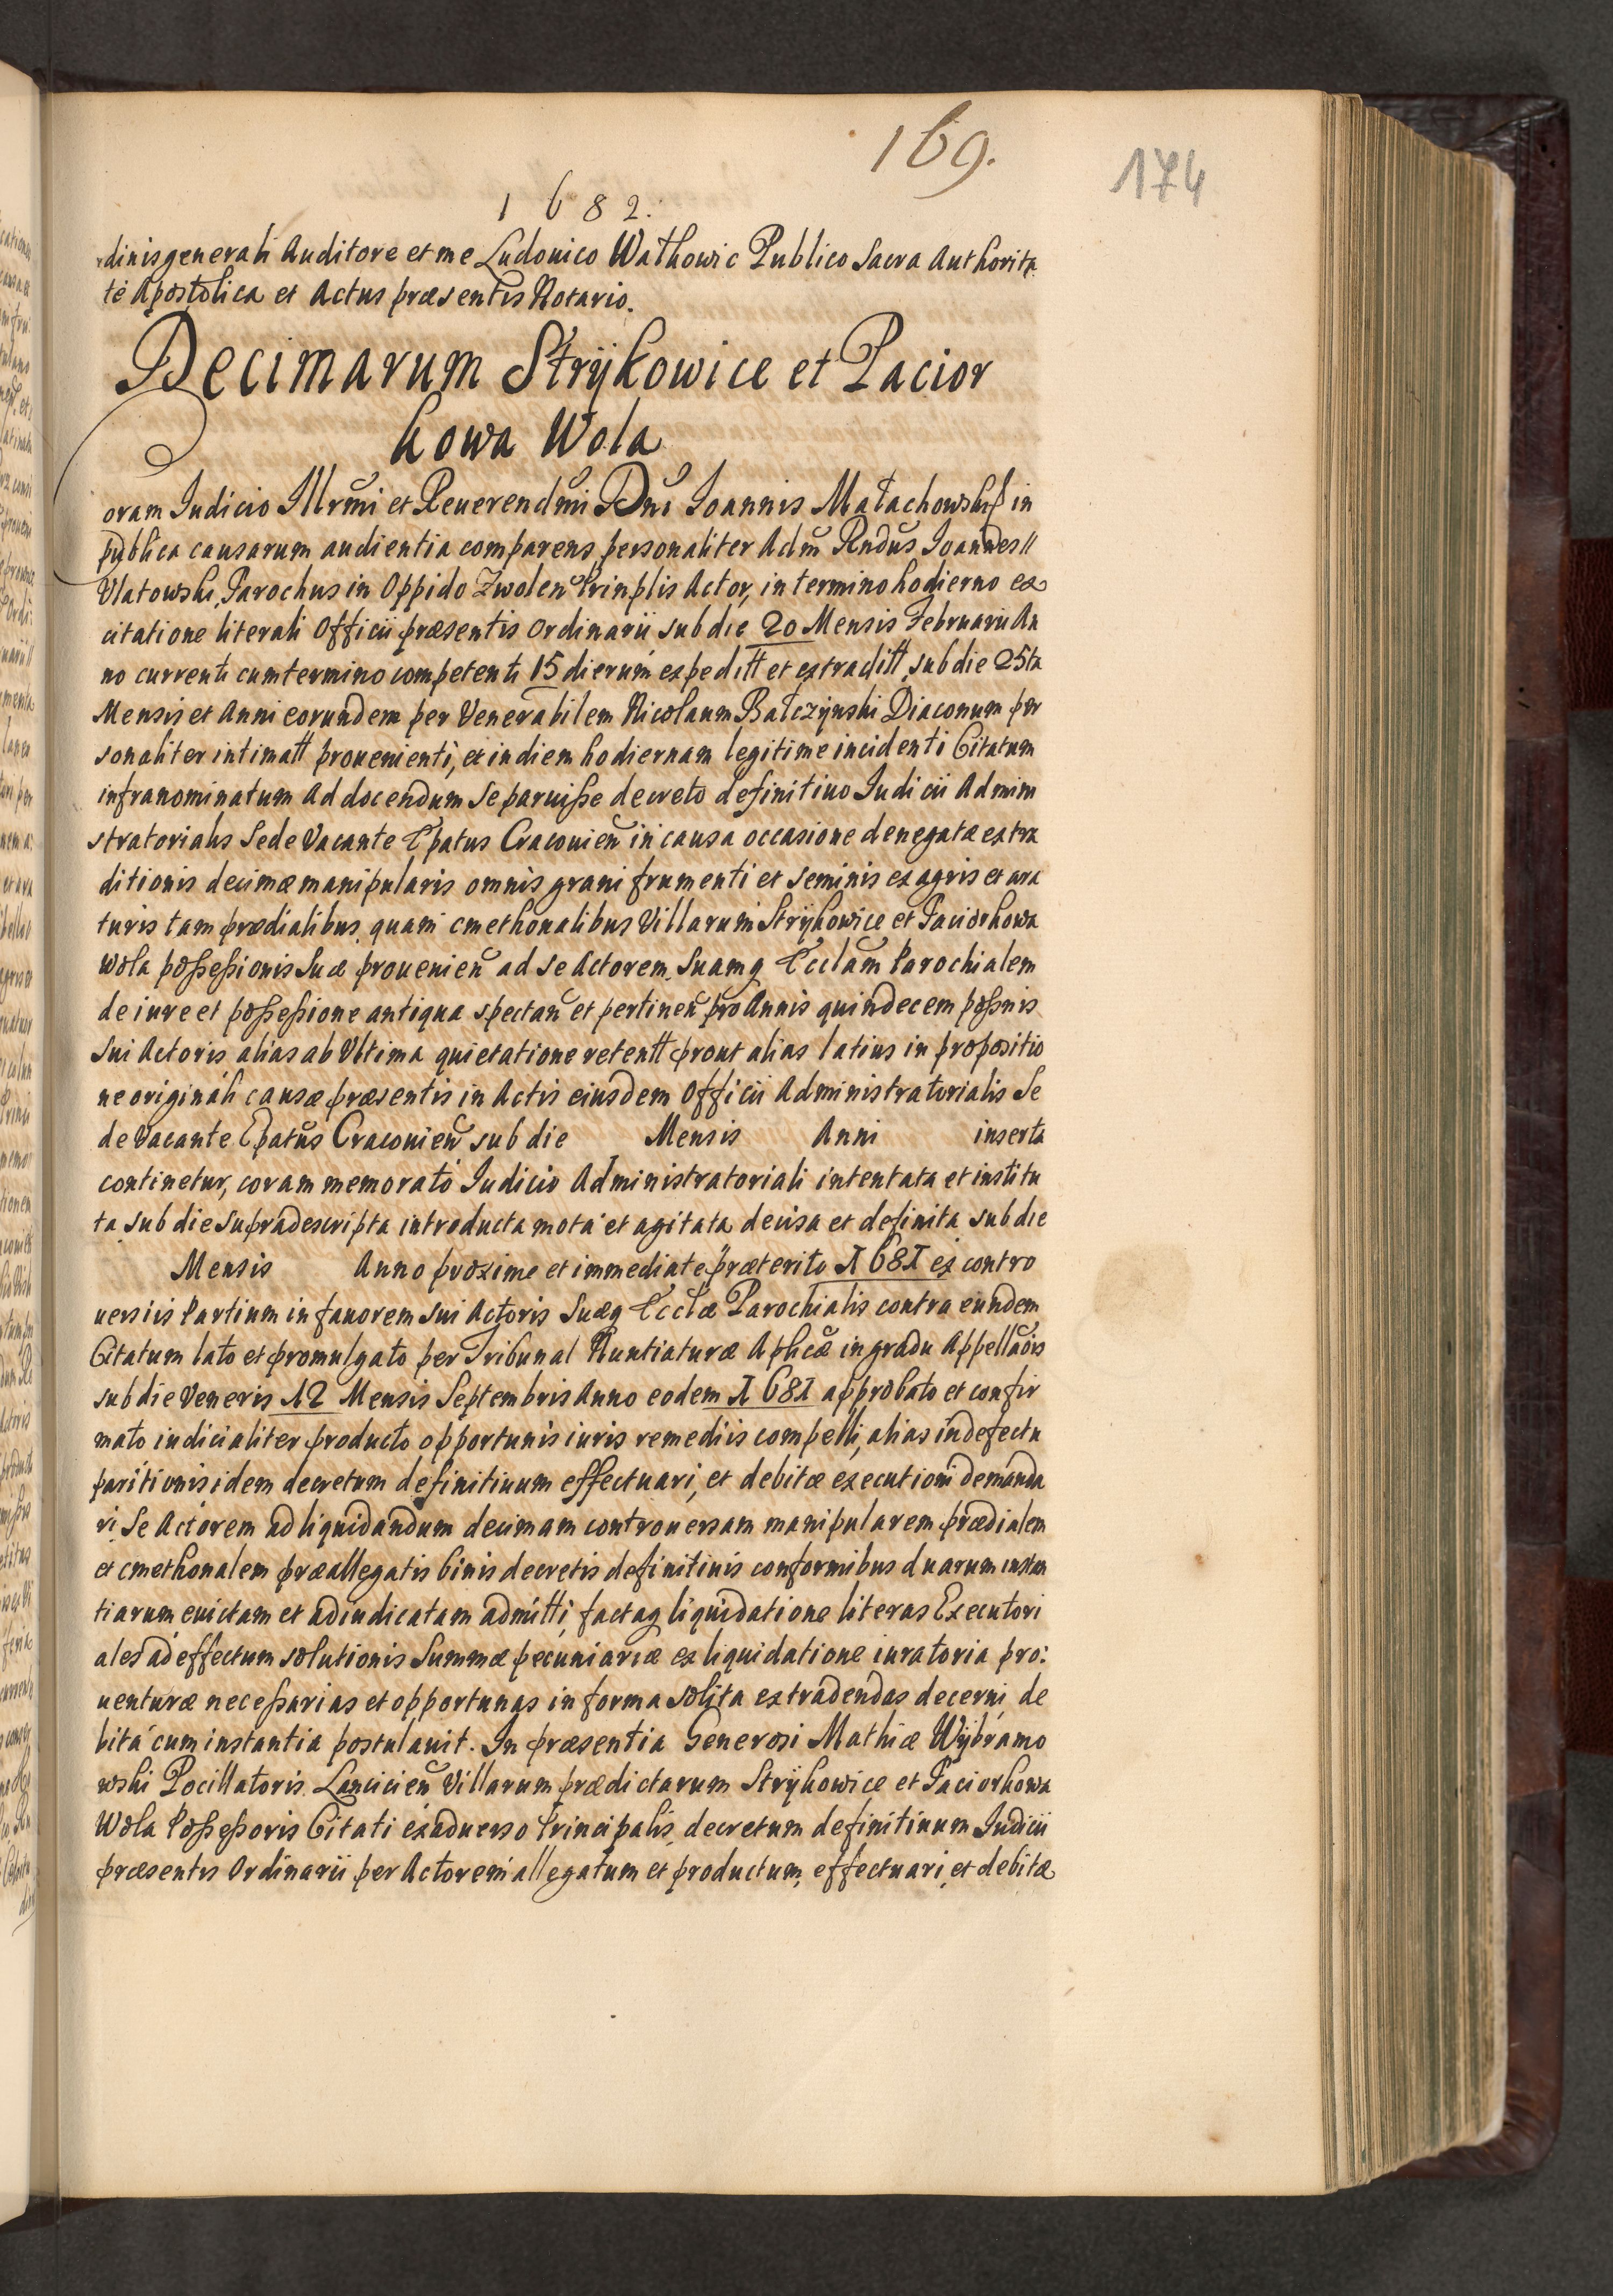 169.
174
1682.
dinis generali Auditore et me Ludouico Wathowic Publico Sacra Authorita
te Apostolica et Actus præsentis Notario.
Decimarum Strÿkowice et Pacior
kowa Wola
Coram Iudicio Illrmi et Reuerendmi Dni Ioannis Małachowski in
publica causarum audientia comparens personaliter Adm Rndus Ioannes //
Vlatowski, Parochus in Oppido Zwolen Prinplis Actor, in termino hodierno ex
citatione literali Officii præsentis Ordinarii sub die 20 Mensis Februarii An
no currenti cum termino competenti 15 dierum expeditt et extraditt, sub die 25ta
Mensis et Anni eorundem per Venerabilem Nicolaum Bałczÿnski Diaconum per
sonaliter intimatt prouenienti, et in diem hodiernam legitime incidenti Citatum
infranominatum Ad docendum se paruiſse decreto definitiuo Iudicii Admini
stratorialis Sede Vacante Epatus Cracouien in causa occasione denegatæ extra
ditionis decimæ manipularis omnis grani frumenti et seminis ex agris et ara
turis tam prædialibus, quam cmethonalibus Villarum Strÿkowice et Paciorkowa
Wola poſseſsionis suæ prouenien ad se Actorem, Suamq Eccłam Parochialem
de iure et poſseſsione antiqua spectan et pertinen pro Annis quindecem poſsnis
Sui Actoris alias ab Vltima quietatione retentt prout alias latius in propositio
ne originali causæ præsentis in Actis eiusdem Officii Administratorialis Se
de Vacante Epatus Cracouien sub die Mensis Anni inserta
continetur, coram memorato Iudicio Administratoriali intentata et institu
ta, sub die supradescripta introducta mota et agitata decisa et definita sub die
Mensis Anno proxime et immediate præterito 1681 ex contro
uersiis Partium in fauorem sui Actoris Suæq Eccłæ Parochialis contra eundem
Citatum lato et promulgato per Tribunal Nuntiaturæ Aplicæ in gradu Appellaõis
sub die Veneris 12 Mensis Septembris Anno eodem 1681 approbato et confir
mato iudicialiter producto opportunis iuris remediis compelli, alias in defectu
paritionis idem decretum definitiuum effectuari, et debitæ executioni demanda
ri, Se Actorem ad liquidandum decimam controuersam manipularem prædialem
et cmethonalem præallegatis binis decretis definitiuis conformibus duarum instan
tiarum euictam et adiudicatam admitti, factaq liquidatione literas Executori
ales ad effectum solutionis Summæ pecuniariæ ex liquidatione iuratoria pro:
uenturæ neceſsarias et opportunas in forma solita extradendas decerni, de
bita cum instantia postulauit. In præsentia Generosi Mathiæ Wÿbramo
wski Pocillatoris Lancicien Villarum prædictarum Strÿkowice et Paciorkowa
Wola Poſseſsoris Citati ex aduerso Principalis, decretum definitiuum Iudicii
præsentis Ordinarii per Actorem allegatum et productum, effectuari, et debitæ